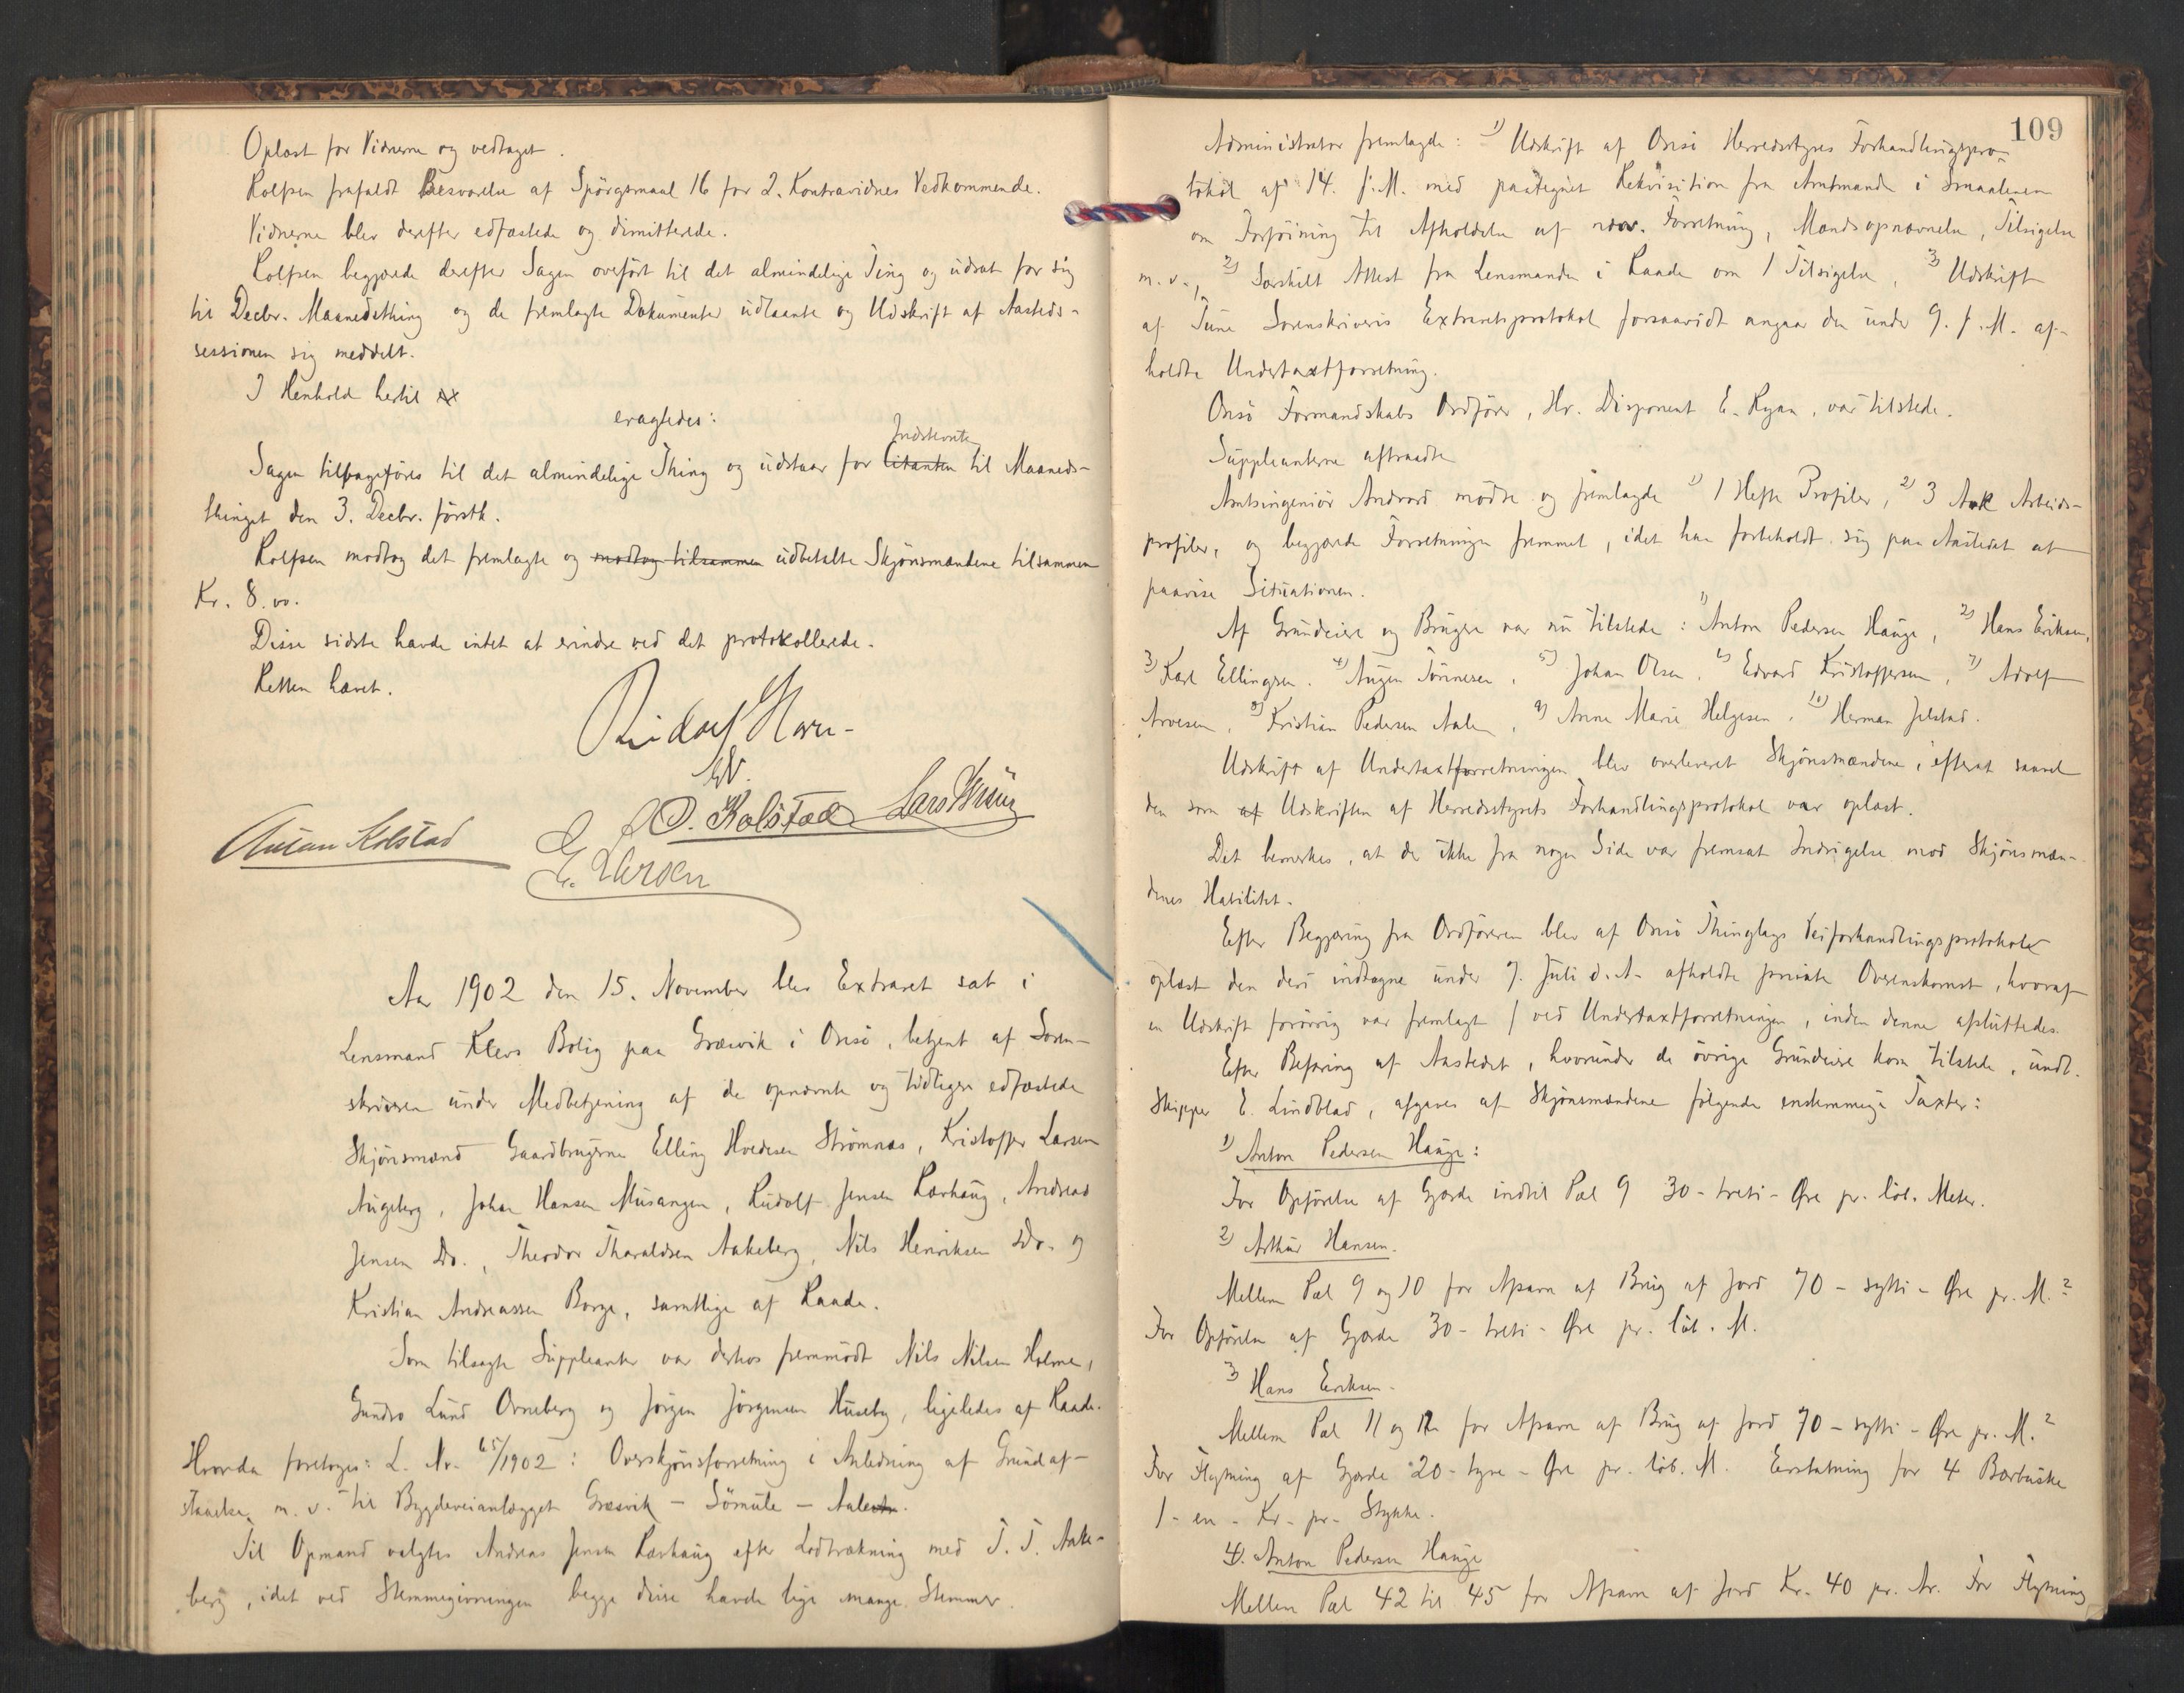 Oplæst for Vidnerne og vedtaget.
Rolfsen frafaldt Besvarelse af Spörgsmaal 16 for 2. Kontravidnes Vedkommende.
Vidnerne blev derefter edfæstede og dimitterede.
Rolfsen begjærede derefter Sagen overført til det almindelige Ting og udsat for sig
til Decbr. Maanedsthing og de fremlagte Dokumenter udlaante og Udskrift af Aasteds-
sessionen sig meddelt.
I Henhold hertil
eragtedes:
Indstevnte
Sagen tilbageføres til det almindelige Thing og udstaar for Citanten til Maaneds-
thinget den 3. Decbr. førstk.
Rolfsen modtog det fremlagte og modtog tilsammen udbetalte Skjønsmændene tilsammen
Kr. 8.00.
Disse sidste havde intet at erindre ved det protokollerede.
Retten hævet.
Rudolf Horn
Anton Kolstad
O. Kolstad
E. Larsen
Aar 1902 den 15. November blev Extraret sat i
Lensmand Klevs Bolig paa Græsvik i Onsö, betjent af Soren-
skriveren under Medbetjening af de opnævnte og tidligere edfæstede
Skjönsmænd Gaardbrugerne Elling Hvedesen Strömnæs, Kristoffer Larsen
Augeberg, Johan Hansen Musangen, Rudolf Jensen Karlshaug, Andreas
Jensen Do., Theodor Tharaldsen Aakeberg, Nils Henriksen Do. og
Kristian Andreassen Borge, samtlige af Raade.
Som tilsagte Suppleanter var derhos fremmødt Nils Nilsen Holme,
Gundro Lund Orneberg og Jörgen Jörgensen Huseby, ligeledes af Raade.
Hvorda foretoges: L. Nr. 65/1902: Overskjönsforretning i Anledning af Grundaf-
staaelse m. v. til Bygdeveianlægget Græsvik – Sömule – Aale
Til Opmand valgtes Andreas Jensen Karlshaug efter Lodtrækning med T. T. Aake-
berg, idet ved Stemmegivningen begge disse havde lige mange Stemmer.
109
Administrator fremlagde: 1) Udskrift af Onsö Herredsstyres Forhandlingspro-
tokol af 14. f. M. med paategnet Rekvisition fra Amtmanden i Smaalenene
om Forføining til Afholdelse af nærv. Forretning, Mandsopnævnelse, Tilsigelse
m. v., 2) Særskilt Attest fra Lensmanden i Raade om 1 Tilsigelse, 3) Udskrift
af Tune Sorenskriveris Extraretsprotokol forsaavidt angaar den under 9. f. M. af-
holdte Undertaxtforretning.
Onsö Formandskabs Ordfører, Hr. Disponent E. Ryan, var tilstede.
Suppleanterne aftraadte
Amtsingeniör Andvord mödte og fremlagde 1) 1 Hefte Profiler, 2) 3 Ark Arbeids-
profiler, og begjærede Forretningen fremmet, idet han forbeholdt sig paa Aastedet at
paavise Situationen.
Af Grundeiere og Brugere var nu tilstede: 1) Anton Pedersen Hauge, 2) Hans Eriksen,
3) Karl Ellingsen. 4) Augen Tönnesen, 5) Johan Olsen. 6) Edvard Kristoffersen, 7) Adolf
Arvesen, 8) Kristian Pedersen Aale, 9) Anne Marie Helgesen. 10) Herman Jelstad.
Udskrift af Undertaxtforretningen blev overleveret Skjönsmændene, efterat saavel
den som af Udskriften af Herredsstyrets Forhandlingsprotokol var oplæst.
Det bemerkes, at der ikke fra nogen Side var fremsat Indsigelse mod Skjönsmæn-
denes Habilitet.
Efter Begjæring fra Ordføreren blev af Onsö Thinglags Veiforhandlingsprotokol
oplæst den deri indtagne under 7. Juli d. A. afholdte private Overenskomst, hvoraf
en Udskrift forövrig var fremlagt ved Undertaxtforretningen, inden denne afsluttedes.
Efter Befaring af Aastedet, hvorunder de övrige Grundeiere kom tilstede, undt.
Skipper E. Lindblad, afgaves af Skjönsmændene følgende enstemmige Taxter:
1) Anton Pedersen Hauge:
For Opförelse af Gjærde indtil Pæl 9 30 - treti - Øre pr. löb. Meter.
2) Arthur Hansen.
Mellem Pæl 9 og 10 for Afsavn af Brug af Jord 70 - sytti - Øre pr. M.2
For Opförelse af Gjærde 30 - treti - Øre pr. löb. M.
3) Hans Eriksen.
Mellem Pæl 11 og 12 for Afsavn af Brug af Jord 70 - sytti - Øre pr. M.2
For Flytning af Gjærde 20 - tyve - Øre pr. löb. M. Erstatning for 4 Bærbuske
1 - en - Kr. pr. Stykke.
4). Anton Pedersen Hauge
Mellem Pæl 42 til 45 for Afsavn af Jord Kr. 40 pr. Ar. For Flytning